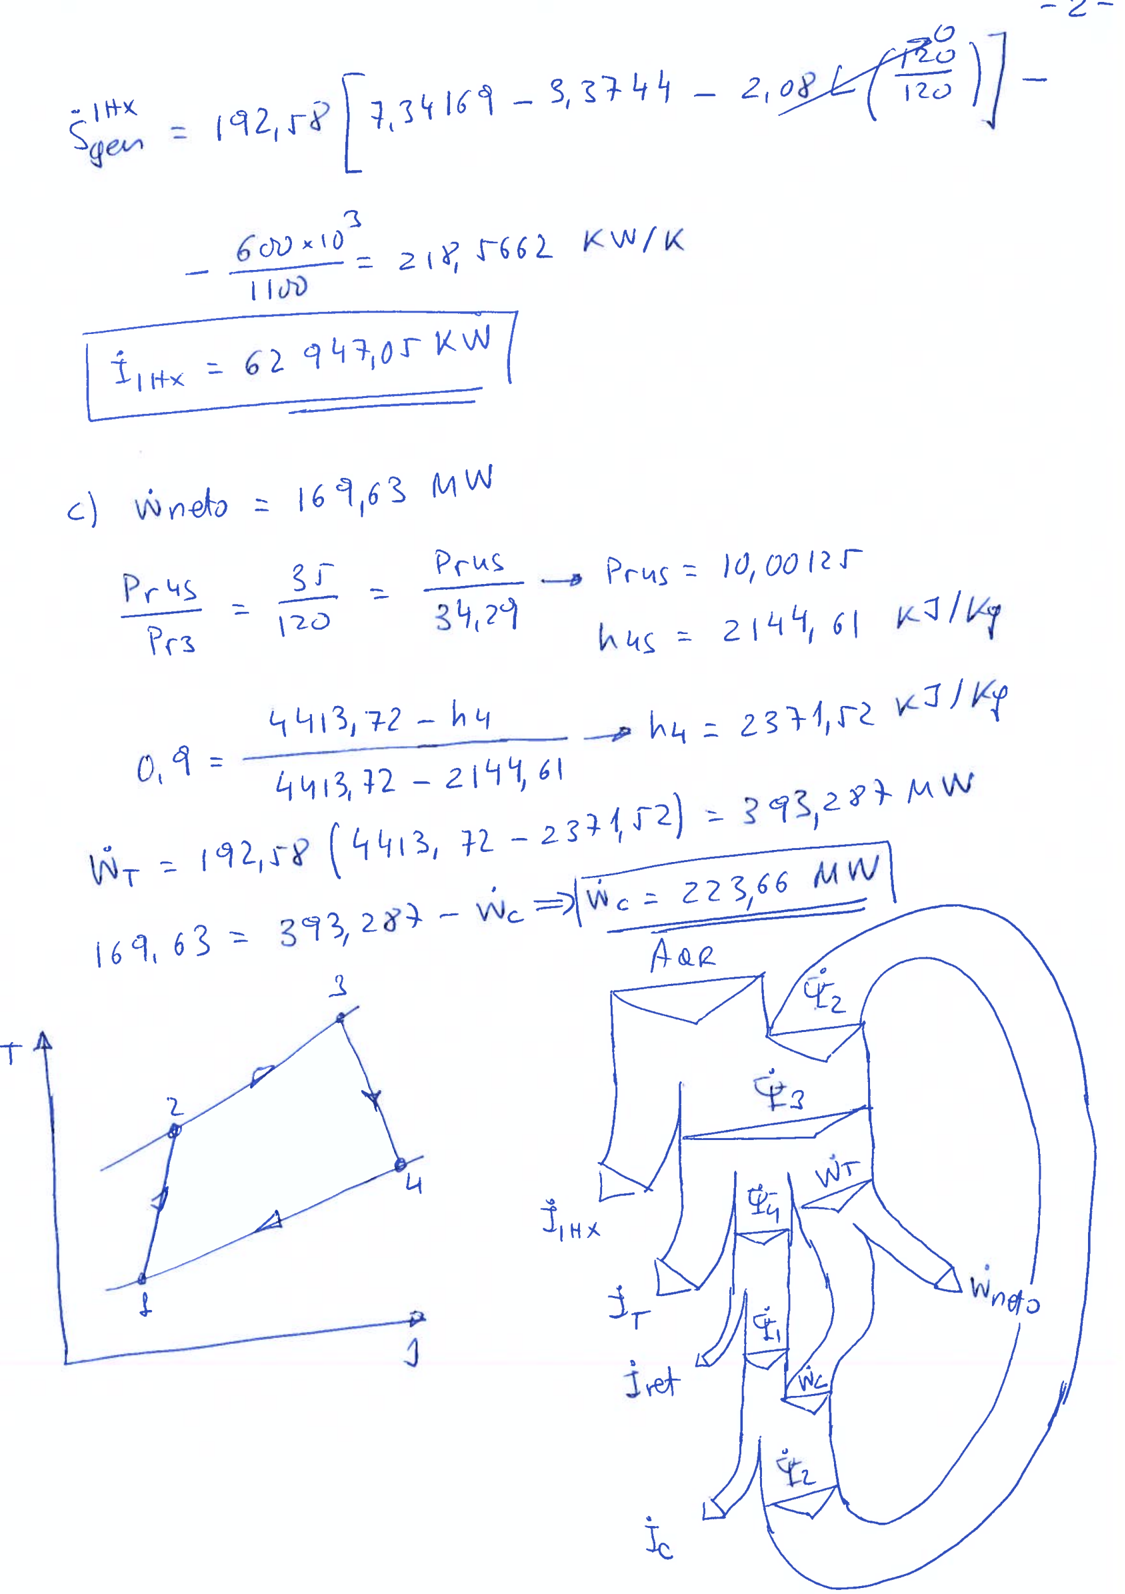 - 2 -
Ṡgen^IHX = 192,58 [ 7,34169 - 3,3744 - 2,08 L (120/120)^0 ] -
- 600×10^3/1100 = 218,5662 KW/K
İIHX = 62 947,05 KW
c) ẇneto = 169,63 MW
Pr4s/Pr3 = 35/120 = Pr4s/34,29 → Pr4s = 10,00125
h4s = 2144,61 KJ/Kg
0,9 = (4413,72 - h4)/(4413,72 - 2144,61) → h4 = 2371,52 KJ/Kg
ẆT = 192,58 (4413,72 - 2371,52) = 393,287 MW
169,63 = 393,287 - Ẇc ⇒ Ẇc = 223,66 MW
AQR
Ψ̇2
3
T
2
Ψ̇3
4
Ψ̇4
ẆT
İIHX
1
İT
Ẇneto
Ψ̇1
İret
Ẇc
Ψ̇2
İc